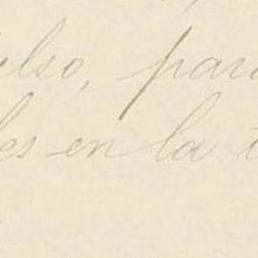 ulso, para
les en la t